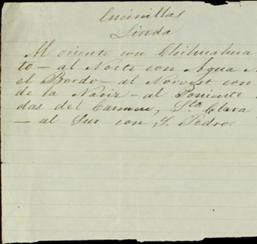 Encinillas
Linda
Al oriente con Chihuahua
to – al Norte con Agua N
el Bordo – al Noroeste con
de la Nariz – al Poniente
das del Carmen, Sta Clara
– al Sur con S. Pedro